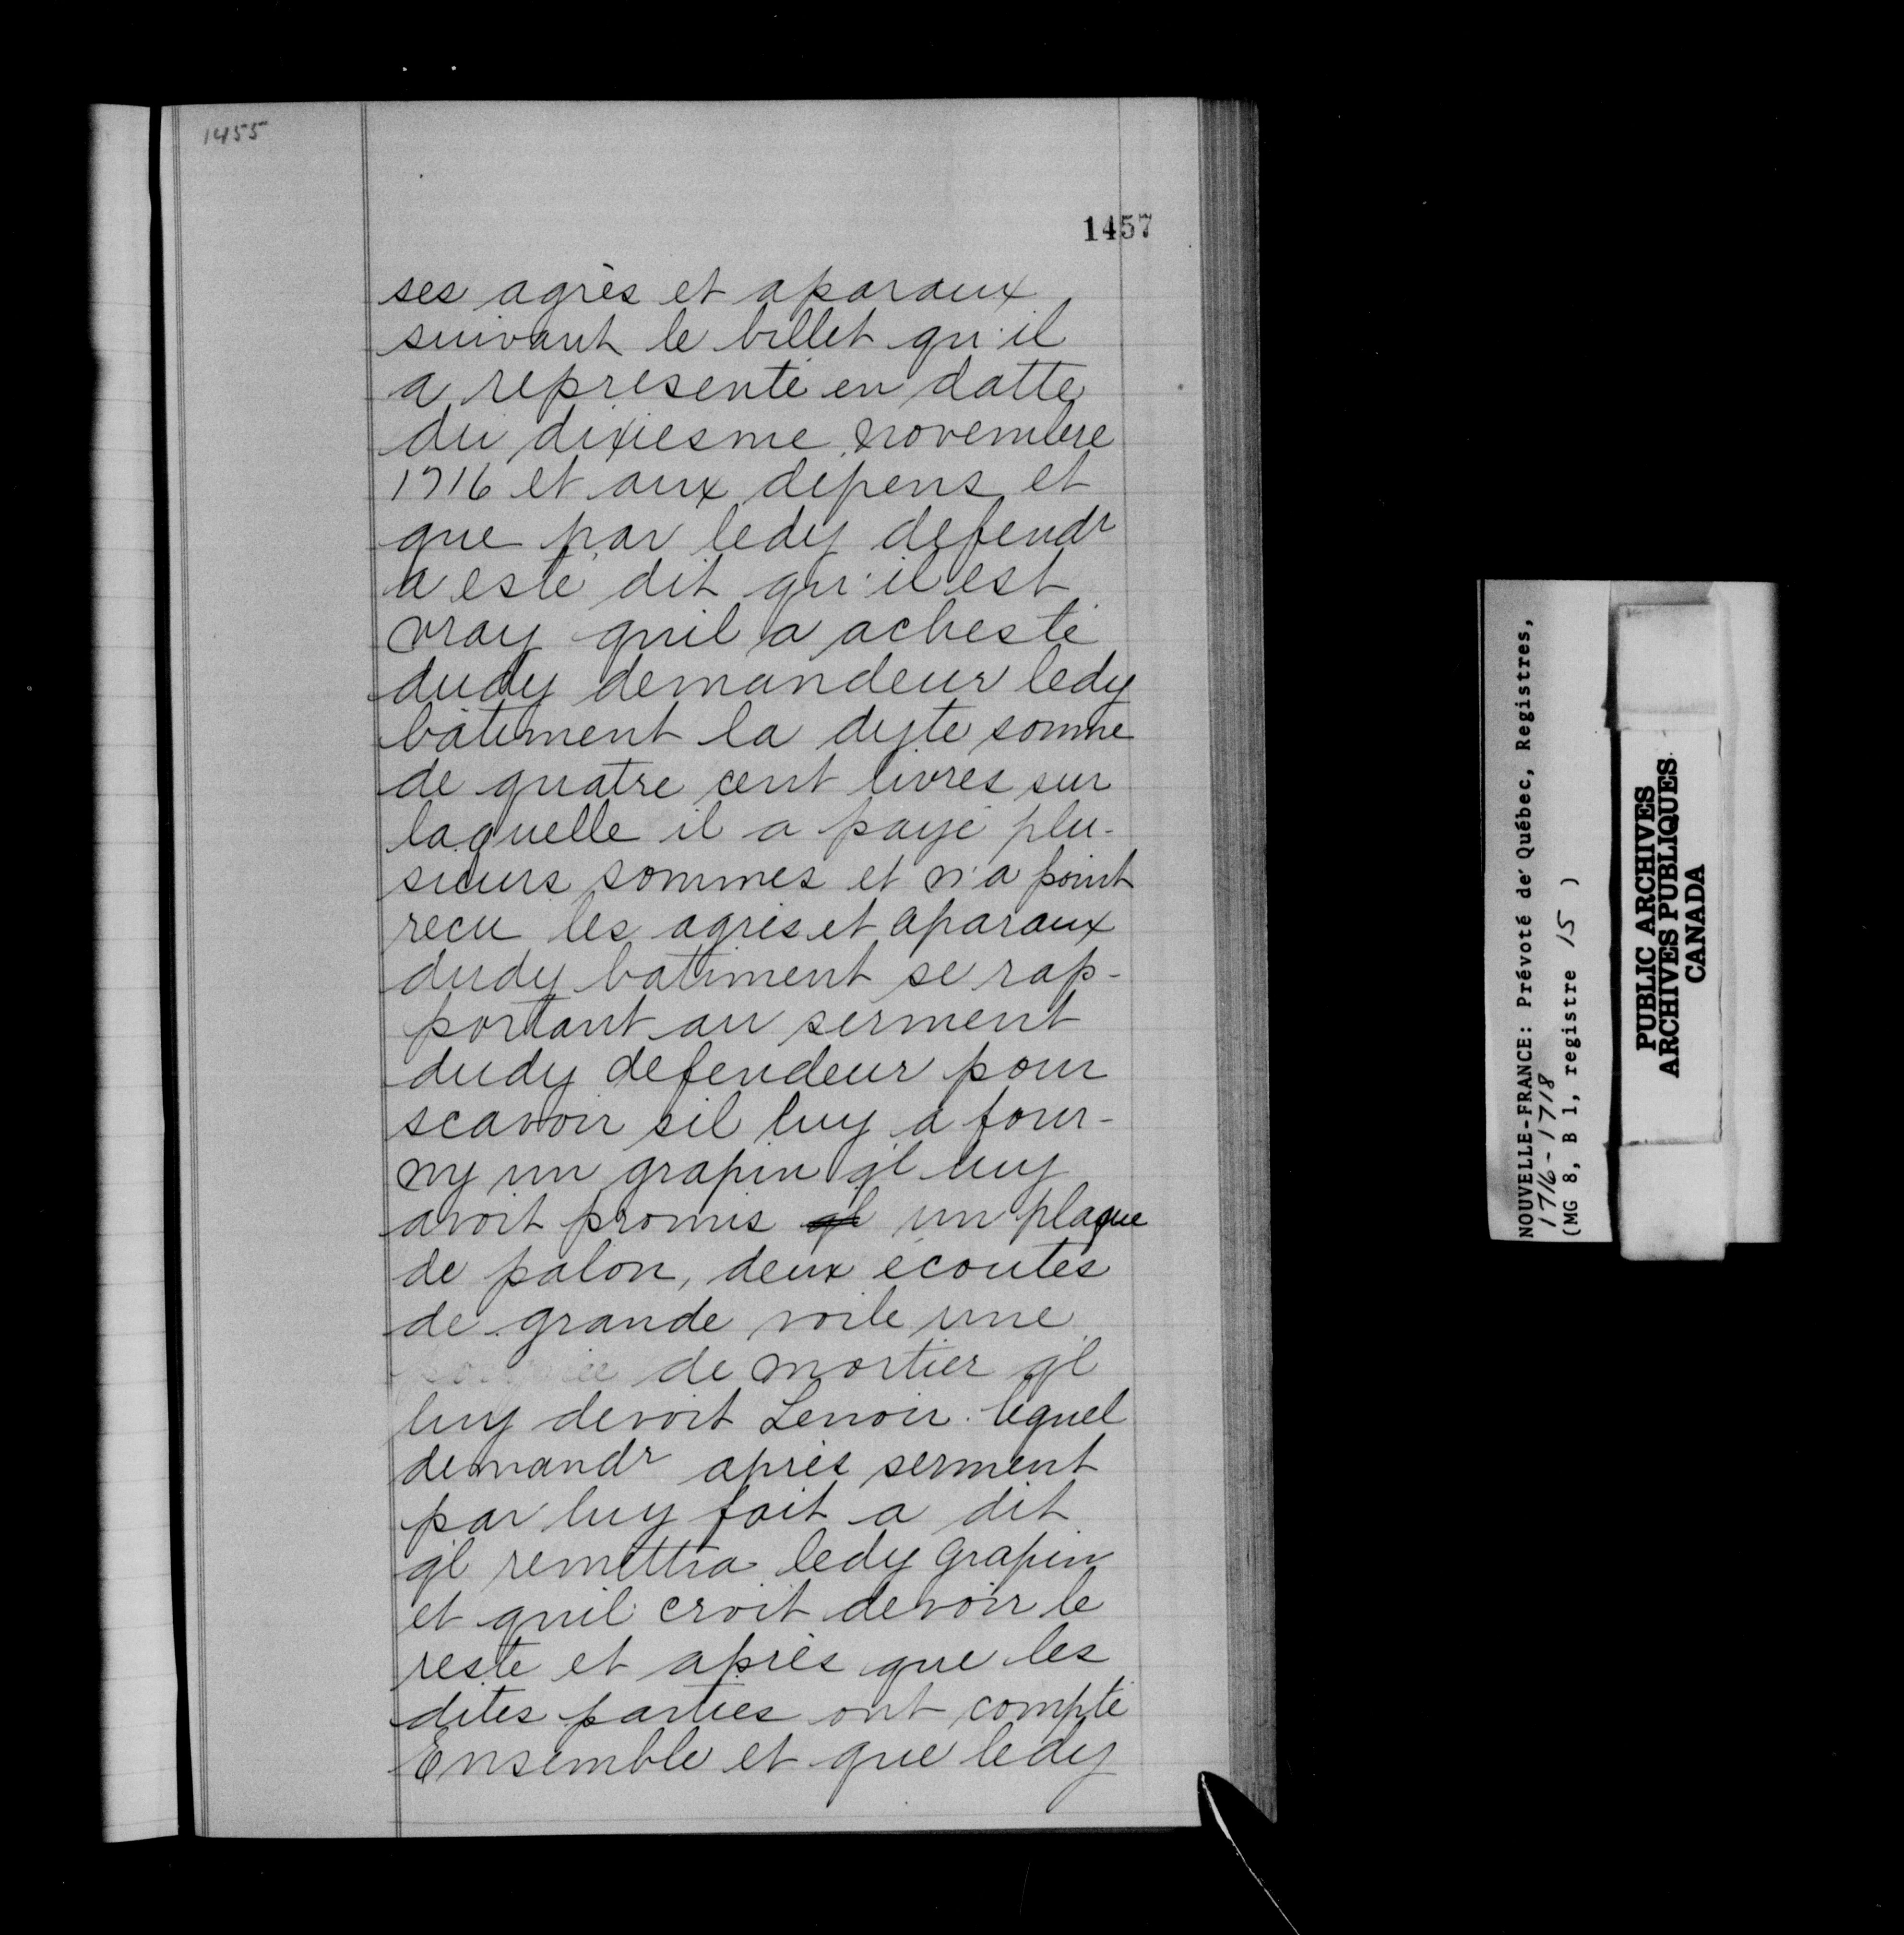 1455
1457
ses agrès et aparaux
suivant le billet qu'il
a representé en datte
du dixiesme novembre
1716 et aux depens et
que par ledy defendr
a esté dit qu'il est
vray quil a achesté
dudy demandeur ledy
bâtiment la dyte somme
de quatre cent livres sur
laquelle il a payé plu-
sieurs sommes et n'a point
recu les agrès et aparaux
dudy batiment se rap-
portant au serment
dudy defendeur pour
scavoir sil luy a four-
ny un grapin ql luy
avoit promis ql un plaque
de palon, deux écoutes
de grande voile une
de mortier ql
luy devoit Lenoir lequel
demandr après serment
par luy fait a dit
ql remettra ledy grapin
et quil croit devoir le
reste et après que les
dites parties ont compté
Ensemble et que ledy
NOUVELLE-FRANCE: Prévoté de Québec, Registres,
1716-1718
(MG 8, B 1, registre 15 )
PUBLIC ARCHIVES
ARCHIVES PUBLIQUES
CANADA